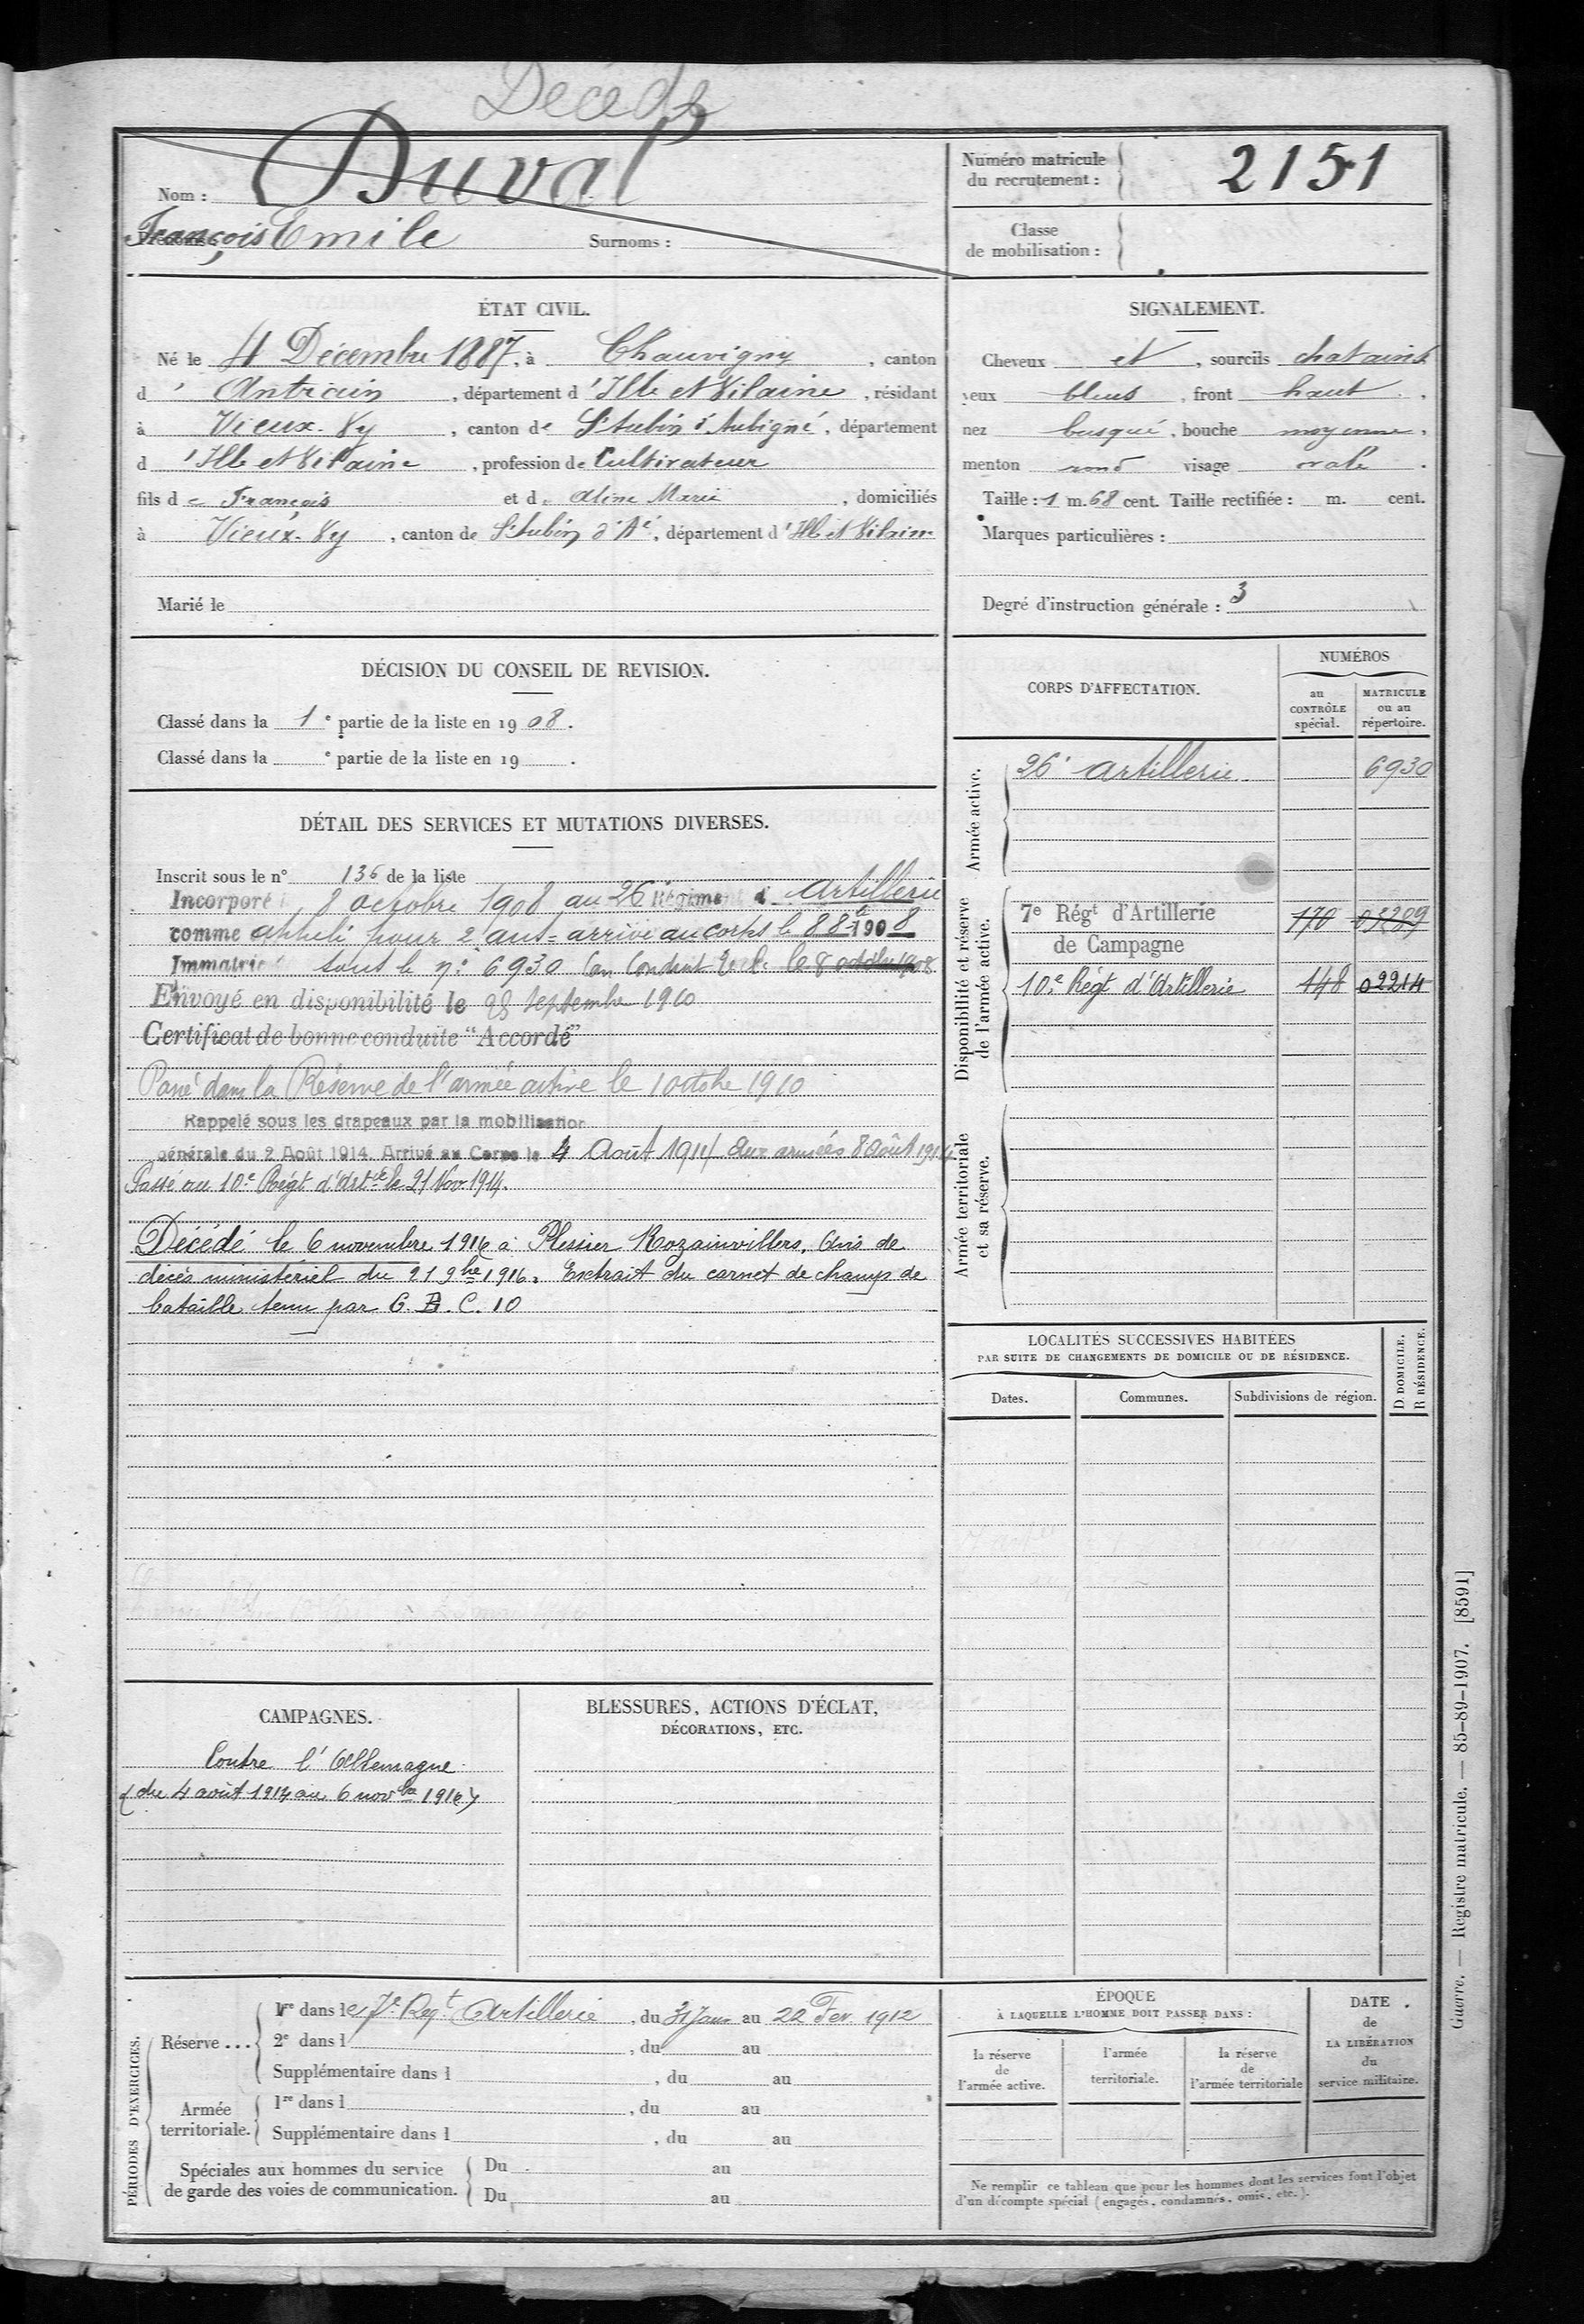 Décédé
Nom : Duval
Numéro matricule du recrutement : 2151
François Emile Surnoms :
Classe de mobilisation :
ÉTAT CIVIL.
Né le 4 Décembre 1887, à Chauvigny, canton
d'Antrain, département d'Ille et Vilaine, résidant
à Vieux-Vy, canton de St Aubin d'Aubigné, département
d'Ille et Vilaine, profession de Cultivateur
fils de François et d. Aline Marie, domiciliés
à Vieux-Vy, canton de St Aubin d'Aé, département d'Ille et Vilaine
Marié le
SIGNALEMENT.
Cheveux et, sourcils chatains
yeux bleus, front haut,
nez busqué, bouche moyenne,
menton rond visage ovale.
Taille : 1 m. 68 cent. Taille rectifiée : m. cent.
Marques particulières :
Degré d'instruction générale : 3
DÉCISION DU CONSEIL DE REVISION.
Classé dans la 1e partie de la liste en 1908.
Classé dans la e partie de la liste en 19 .
DÉTAIL DES SERVICES ET MUTATIONS DIVERSES.
Inscrit sous le n° 136 de la liste
Incorporé 8 octobre 1908 au 26 Régiment d'Artillerie
comme appelé pour 2 ans - arrivé au corps le 8 8bre 1908
Immatric sous le n° 6930 Can Conduct le 8 octobre 1908
Envoyé en disponibilité le 25 septembre 1910
Certificat de bonne conduite "Accordé"
Passé dans la Réserve de l'armée active le 1 octobre 1910
Rappelé sous les drapeaux par la mobilisation
générale du 2 Août 1914. Arrivé au Corps le 4 Août 1914 Aux armées 8 Août 1914
Passé au 10e Régt d'Artie le 21 Nov. 1914.
Décédé le 6 novembre 1916 à Plessier Rozainvillers. Avis de
décès ministériel du 21 9bre 1916. Extrait du carnet de champ de
bataille tenu par G. B. C. 10
CORPS D'AFFECTATION.
NUMÉROS
au CONTRÔLE spécial.
MATRICULE ou au répertoire.
Armée active.
26e Artillerie 6930
Disponibilité et réserve de l'armée active.
7e Régt d'Artillerie de Campagne 170 03289
10e Régt d'Artillerie 148 02214
Armée territoriale et sa réserve.
LOCALITÉS SUCCESSIVES HABITÉES
PAR SUITE DE CHANGEMENTS DE DOMICILE OU DE RÉSIDENCE.
Dates.
Communes.
Subdivisions de région.
D. DOMICILE.
R RÉSIDENCE.
CAMPAGNES.
Contre l'Allemagne
(du 4 août 1914 au 6 novbre 1916)
BLESSURES, ACTIONS D'ÉCLAT,
DÉCORATIONS, ETC.
PÉRIODES D'EXERCICES.
Réserve...
1re dans le 7e Regt Artillerie, du 31 Janv au 22 Fev. 1912
2e dans l , du au
Supplémentaire dans l , du au
Armée territoriale.
1re dans l , du au
Supplémentaire dans l , du au
Spéciales aux hommes du service
de garde des voies de communication.
Du au
Du au
ÉPOQUE
À LAQUELLE L'HOMME DOIT PASSER DANS :
la réserve de l'armée active.
l'armée territoriale.
la réserve de l'armée territoriale
DATE de LA LIBÉRATION du service militaire.
Ne remplir ce tableau que pour les hommes dont les services font l'objet
d'un décompte spécial (engagés, condamnés, omis, etc.).
Guerre. — Registre matricule. — 85-89-1907. [8591]